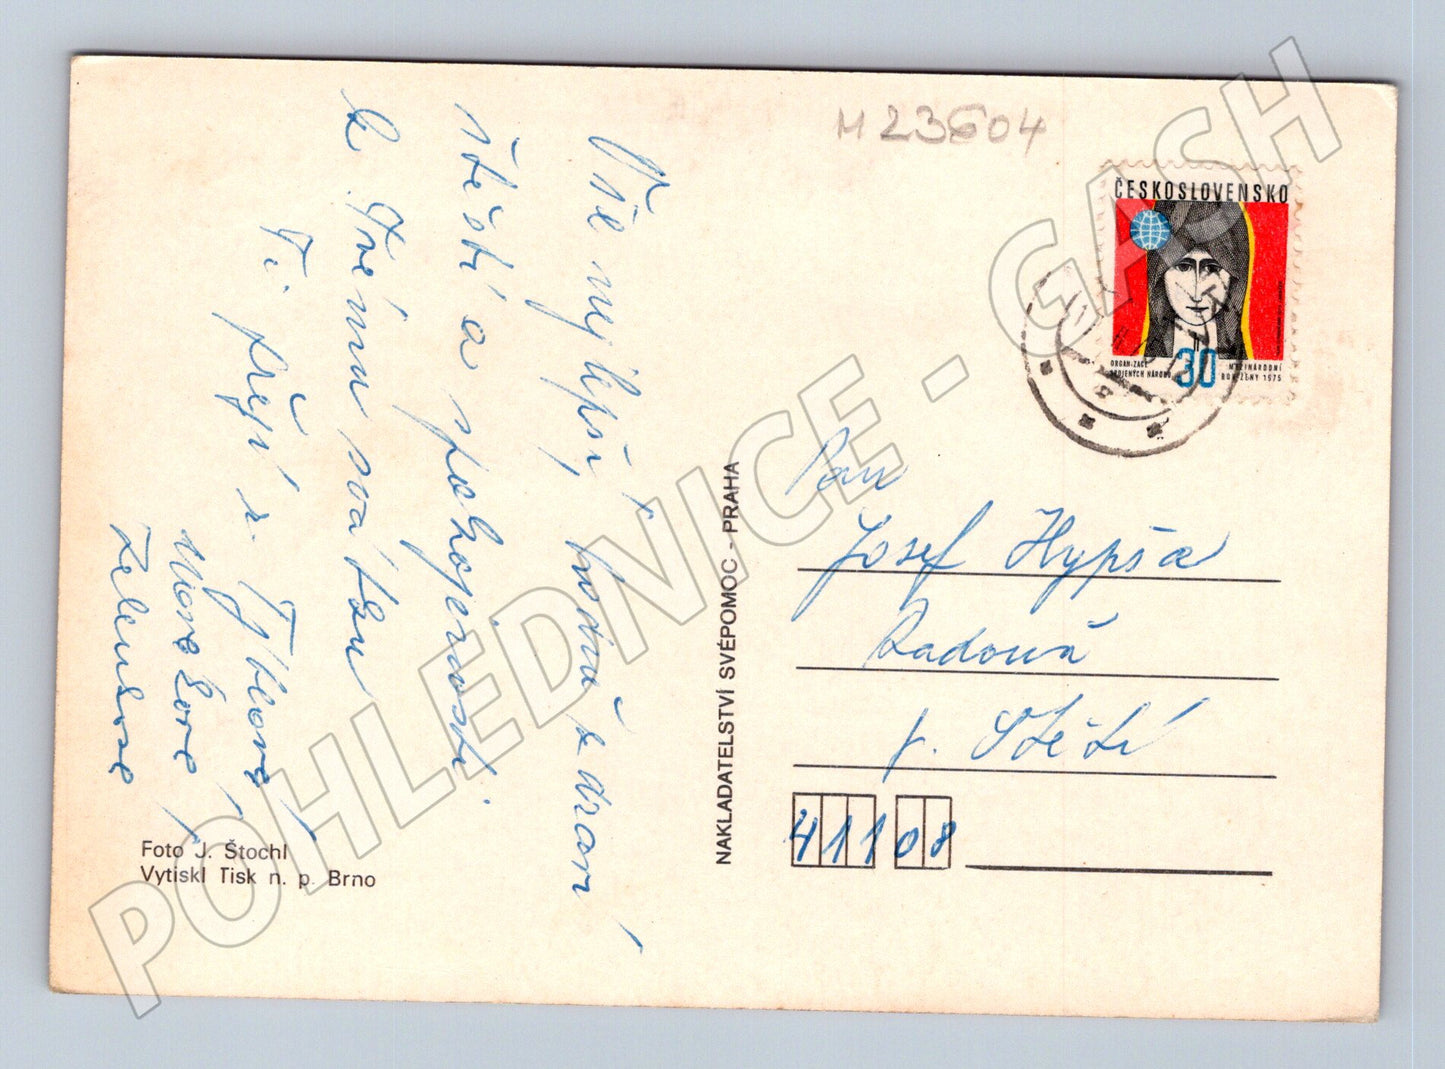 M 23604
ČESKOSLOVENSKO
ORGANIZACE
SPOJENÝCH NÁRODŮ
30
MEZINÁRODNÍ
ROK ŽENY 1975
Vše nejlepší, hodně zdraví,
štěstí a spokojenosti
k Tvému svátku
Ti přejí z
Foto J. Štochl
Vytiskl Tisk n. p. Brno
NAKLADATELSTVÍ SVÉPOMOC - PRAHA
Pan
Josef Hypša
Radouň
p. Štětí
411 08
POHLEDNICE - GASH